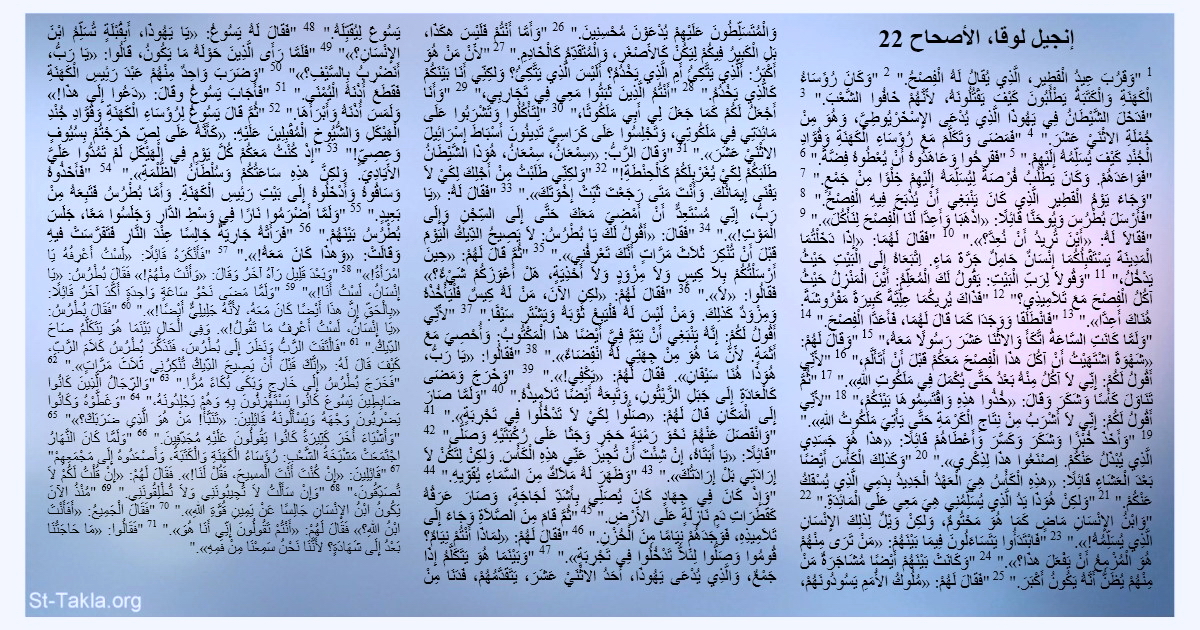 إنجيل لوقا، الأصحاح 22
1 "وَقَرُبَ عِيدُ الْفَطِيرِ، الَّذِي يُقَالُ لَهُ الْفِصْحُ." 2 "وَكَانَ رُؤَسَاءُ
الْكَهَنَةِ وَالْكَتَبَةُ يَطْلُبُونَ كَيْفَ يَقْتُلُونَهُ، لأَنَّهُمْ خَافُوا الشَّعْبَ." 3
"فَدَخَلَ الشَّيْطَانُ فِي يَهُوذَا الَّذِي يُدْعَى الإِسْخَرْيُوطِيَّ، وَهُوَ مِنْ
جُمْلَةِ الاثْنَيْ عَشَرَ." 4 "فَمَضَى وَتَكَلَّمَ مَعَ رُؤَسَاءِ الْكَهَنَةِ وَقُوَّادِ
الْجُنْدِ كَيْفَ يُسَلِّمُهُ إِلَيْهِمْ." 5 "فَفَرِحُوا وَعَاهَدُوهُ أَنْ يُعْطُوهُ فِضَّةً." 6
"فَوَاعَدَهُمْ. وَكَانَ يَطْلُبُ فُرْصَةً لِيُسَلِّمَهُ إِلَيْهِمْ خِلْوًا مِنْ جَمْعٍ." 7
"وَجَاءَ يَوْمُ الْفَطِيرِ الَّذِي كَانَ يَنْبَغِي أَنْ يُذْبَحَ فِيهِ الْفِصْحُ." 8
"فَأَرْسَلَ بُطْرُسَ وَيُوحَنَّا قَائِلًا: «اذْهَبَا وَأَعِدَّا لَنَا الْفِصْحَ لِنَأْكُلَ»." 9
"فَقَالاَ لَهُ: «أَيْنَ تُرِيدُ أَنْ نُعِدَّ؟»." 10 "فَقَالَ لَهُمَا: «إِذَا دَخَلْتُمَا
الْمَدِينَةَ يَسْتَقْبِلُكُمَا إِنْسَانٌ حَامِلٌ جَرَّةَ مَاءٍ. اِتْبَعَاهُ إِلَى الْبَيْتِ حَيْثُ
يَدْخُلُ،" 11 "وَقُولاَ لِرَبِّ الْبَيْتِ: يَقُولُ لَكَ الْمُعَلِّمُ: أَيْنَ الْمَنْزِلُ حَيْثُ
آكُلُ الْفِصْحَ مَعَ تَلاَمِيذِي؟" 12 "فَذَاكَ يُرِيكُمَا عِلِّيَّةً كَبِيرَةً مَفْرُوشَةً.
هُنَاكَ أَعِدَّا»." 13 "فَانْطَلَقَا وَوَجَدَا كَمَا قَالَ لَهُمَا، فَأَعَدَّا الْفِصْحَ." 14
"وَلَمَّا كَانَتِ السَّاعَةُ اتَّكَأَ وَالاثْنَا عَشَرَ رَسُولًا مَعَهُ،" 15 "وَقَالَ لَهُمْ:
«شَهْوَةً اشْتَهَيْتُ أَنْ آكُلَ هذَا الْفِصْحَ مَعَكُمْ قَبْلَ أَنْ أَتَأَلَّمَ،" 16 "لأَنِّي
أَقُولُ لَكُمْ: إِنِّي لاَ آكُلُ مِنْهُ بَعْدُ حَتَّى يُكْمَلَ فِي مَلَكُوتِ اللهِ»." 17 "ثُمَّ
تَنَاوَلَ كَأْسًا وَشَكَرَ وَقَالَ: «خُذُوا هذِهِ وَاقْتَسِمُوهَا بَيْنَكُمْ،" 18 "لأَنِّي
أَقُولُ لَكُمْ: إِنِّي لاَ أَشْرَبُ مِنْ نِتَاجِ الْكَرْمَةِ حَتَّى يَأْتِيَ مَلَكُوتُ اللهِ»."
19 "وَأَخَذَ خُبْزًا وَشَكَرَ وَكَسَّرَ وَأَعْطَاهُمْ قَائِلًا: «هذَا هُوَ جَسَدِي
الَّذِي يُبْذَلُ عَنْكُمْ. اِصْنَعُوا هذَا لِذِكْرِي»." 20 "وَكَذلِكَ الْكَأْسَ أَيْضًا
بَعْدَ الْعَشَاءِ قَائِلًا: «هذِهِ الْكَأْسُ هِيَ الْعَهْدُ الْجَدِيدُ بِدَمِي الَّذِي يُسْفَكُ
عَنْكُمْ." 21 "وَلكِنْ هُوَذَا يَدُ الَّذِي يُسَلِّمُنِي هِيَ مَعِي عَلَى الْمَائِدَةِ." 22
"وَابْنُ الإِنْسَانِ مَاضٍ كَمَا هُوَ مَحْتُومٌ، وَلكِنْ وَيْلٌ لِذلِكَ الإِنْسَانِ
الَّذِي يُسَلِّمُهُ!»." 23 "فَابْتَدَأُوا يَتَسَاءَلُونَ فِيمَا بَيْنَهُمْ: «مَنْ تَرَى مِنْهُمْ
هُوَ الْمُزْمِعُ أَنْ يَفْعَلَ هذَا؟»." 24 "وَكَانَتْ بَيْنَهُمْ أَيْضًا مُشَاجَرَةٌ مَنْ
مِنْهُمْ يُظَنُّ أَنَّهُ يَكُونُ أَكْبَرَ." 25 "فَقَالَ لَهُمْ: «مُلُوكُ الأُمَمِ يَسُودُونَهُمْ،
وَالْمُتَسَلِّطُونَ عَلَيْهِمْ يُدْعَوْنَ مُحْسِنِينَ." 26 "وَأَمَّا أَنْتُمْ فَلَيْسَ هكَذَا،
بَلِ الْكَبِيرُ فِيكُمْ لِيَكُنْ كَالأَصْغَرِ، وَالْمُتَقَدِّمُ كَالْخَادِمِ." 27 "لأَنْ مَنْ هُوَ
أَكْبَرُ: أَلَّذِي يَتَّكِئُ أَمِ الَّذِي يَخْدُمُ؟ أَلَيْسَ الَّذِي يَتَّكِئُ؟ وَلكِنِّي أَنَا بَيْنَكُمْ
كَالَّذِي يَخْدُمُ." 28 "أَنْتُمُ الَّذِينَ ثَبَتُوا مَعِي فِي تَجَارِبِي،" 29 "وَأَنَا
أَجْعَلُ لَكُمْ كَمَا جَعَلَ لِي أَبِي مَلَكُوتًا،" 30 "لِتَأْكُلُوا وَتَشْرَبُوا عَلَى
مَائِدَتِي فِي مَلَكُوتِي، وَتَجْلِسُوا عَلَى كَرَاسِيَّ تَدِينُونَ أَسْبَاطَ إِسْرَائِيلَ
الاثْنَيْ عَشَرَ»." 31 "وَقَالَ الرَّبُّ: «سِمْعَانُ، سِمْعَانُ، هُوَذَا الشَّيْطَانُ
طَلَبَكُمْ لِكَيْ يُغَرْبِلَكُمْ كَالْحِنْطَةِ!" 32 "وَلكِنِّي طَلَبْتُ مِنْ أَجْلِكَ لِكَيْ لاَ
يَفْنَى إِيمَانُكَ. وَأَنْتَ مَتَى رَجَعْتَ ثَبِّتْ إِخْوَتَكَ»." 33 "فَقَالَ لَهُ: «يَا
رَبُّ، إِنِّي مُسْتَعِدٌّ أَنْ أَمْضِيَ مَعَكَ حَتَّى إِلَى السِّجْنِ وَإِلَى
الْمَوْتِ!»." 34 "فَقَالَ: «أَقُولُ لَكَ يَا بُطْرُسُ: لاَ يَصِيحُ الدِّيكُ الْيَوْمَ
قَبْلَ أَنْ تُنْكِرَ ثَلاَثَ مَرَّاتٍ أَنَّكَ تَعْرِفُنِي»." 35 "ثُمَّ قَالَ لَهُمْ: «حِينَ
أَرْسَلْتُكُمْ بِلاَ كِيسٍ وَلاَ مِزْوَدٍ وَلاَ أَحْذِيَةٍ، هَلْ أَعْوَزَكُمْ شَيْءٌ؟»
فَقَالُوا: «لاَ»." 36 "فَقَالَ لَهُمْ: «لكِنِ الآنَ، مَنْ لَهُ كِيسٌ فَلْيَأْخُذْهُ
وَمِزْوَدٌ كَذلِكَ. وَمَنْ لَيْسَ لَهُ فَلْيَبِعْ ثَوْبَهُ وَيَشْتَرِ سَيْفًا." 37 "لأَنِّي
أَقُولُ لَكُمْ: إِنَّهُ يَنْبَغِي أَنْ يَتِمَّ فِيَّ أَيْضًا هذَا الْمَكْتُوبُ: وَأُحْصِيَ مَعَ
أَثَمَةٍ. لأَنَّ مَا هُوَ مِنْ جِهَتِي لَهُ انْقِضَاءٌ»." 38 "فَقَالُوا: «يَا رَبُّ،
هُوَذَا هُنَا سَيْفَانِ». فَقَالَ لَهُمْ: «يَكْفِي!»." 39 "وَخَرَجَ وَمَضَى
كَالْعَادَةِ إِلَى جَبَلِ الزَّيْتُونِ، وَتَبِعَهُ أَيْضًا تَلاَمِيذُهُ." 40 "وَلَمَّا صَارَ
إِلَى الْمَكَانِ قَالَ لَهُمْ: «صَلُّوا لِكَيْ لاَ تَدْخُلُوا فِي تَجْرِبَةٍ»." 41
"وَانْفَصَلَ عَنْهُمْ نَحْوَ رَمْيَةِ حَجَرٍ وَجَثَا عَلَى رُكْبَتَيْهِ وَصَلَّى" 42
"قَائِلًا: «يَا أَبَتَاهُ، إِنْ شِئْتَ أَنْ تُجِيزَ عَنِّي هذِهِ الْكَأْسَ. وَلكِنْ لِتَكُنْ لاَ
إِرَادَتِي بَلْ إِرَادَتُكَ»." 43 "وَظَهَرَ لَهُ مَلاَكٌ مِنَ السَّمَاءِ يُقَوِّيهِ." 44
"وَإِذْ كَانَ فِي جِهَادٍ كَانَ يُصَلِّي بِأَشَدِّ لَجَاجَةٍ، وَصَارَ عَرَقُهُ
كَقَطَرَاتِ دَمٍ نَازِلَةٍ عَلَى الأَرْضِ." 45 "ثُمَّ قَامَ مِنَ الصَّلاَةِ وَجَاءَ إِلَى
تَلاَمِيذِهِ، فَوَجَدَهُمْ نِيَامًا مِنَ الْحُزْنِ." 46 "فَقَالَ لَهُمْ: «لِمَاذَا أَنْتُمْ نِيَامٌ؟
قُومُوا وَصَلُّوا لِئَلاَّ تَدْخُلُوا فِي تَجْرِبَةٍ»." 47 "وَبَيْنَمَا هُوَ يَتَكَلَّمُ إِذَا
جَمْعٌ، وَالَّذِي يُدْعَى يَهُوذَا، أَحَدُ الاثْنَيْ عَشَرَ، يَتَقَدَّمُهُمْ، فَدَنَا مِنْ
يَسُوعَ لِيُقَبِّلَهُ." 48 "فَقَالَ لَهُ يَسُوعُ: «يَا يَهُوذَا، أَبِقُبْلَةٍ تُسَلِّمُ ابْنَ
الإِنْسَانِ؟»" 49 "فَلَمَّا رَأَى الَّذِينَ حَوْلَهُ مَا يَكُونُ، قَالُوا: «يَا رَبُّ،
أَنَضْرِبُ بِالسَّيْفِ؟»" 50 "وَضَرَبَ وَاحِدٌ مِنْهُمْ عَبْدَ رَئِيسِ الْكَهَنَةِ
فَقَطَعَ أُذْنَهُ الْيُمْنَى." 51 "فَأَجَابَ يَسُوعُ وقَالَ: «دَعُوا إِلَى هذَا!»
وَلَمَسَ أُذْنَهُ وَأَبْرَأَهَا." 52 "ثُمَّ قَالَ يَسُوعُ لِرُؤَسَاءِ الْكَهَنَةِ وَقُوَّادِ جُنْدِ
الْهَيْكَلِ وَالشُّيُوخِ الْمُقْبِلِينَ عَلَيْهِ: «كَأَنَّهُ عَلَى لِصٍّ خَرَجْتُمْ بِسُيُوفٍ
وَعِصِيٍّ!" 53 "إِذْ كُنْتُ مَعَكُمْ كُلَّ يَوْمٍ فِي الْهَيْكَلِ لَمْ تَمُدُّوا عَلَيَّ
الأَيَادِيَ. وَلكِنَّ هذِهِ سَاعَتُكُمْ وَسُلْطَانُ الظُّلْمَةِ»." 54 "فَأَخَذُوهُ
وَسَاقُوهُ وَأَدْخَلُوهُ إِلَى بَيْتِ رَئِيسِ الْكَهَنَةِ. وَأَمَّا بُطْرُسُ فَتَبِعَهُ مِنْ
بَعِيدٍ." 55 "وَلَمَّا أَضْرَمُوا نَارًا فِي وَسْطِ الدَّارِ وَجَلَسُوا مَعًا، جَلَسَ
بُطْرُسُ بَيْنَهُمْ." 56 "فَرَأَتْهُ جَارِيَةٌ جَالِسًا عِنْدَ النَّارِ فَتَفَرَّسَتْ فيهِ
وَقَالَتْ: «وَهذَا كَانَ مَعَهُ!»." 57 "فَأَنْكَرَهُ قَائِلًا: «لَسْتُ أَعْرِفُهُ يَا
امْرَأَةُ!»" 58 "وَبَعْدَ قَلِيل رَآهُ آخَرُ وَقَالَ: «وَأَنْتَ مِنْهُمْ!» فَقَالَ بُطْرُسُ: «يَا
إِنْسَانُ، لَسْتُ أَنَا!»" 59 "وَلَمَّا مَضَى نَحْوُ سَاعَةٍ وَاحِدَةٍ أَكَّدَ آخَرُ قَائِلًا:
«بِالْحَقِّ إِنَّ هذَا أَيْضًا كَانَ مَعَهُ، لأَنَّهُ جَلِيلِيٌّ أَيْضًا!»." 60 "فَقَالَ بُطْرُسُ:
«يَا إِنْسَانُ، لَسْتُ أَعْرِفُ مَا تَقُولُ!». وَفِي الْحَالِ بَيْنَمَا هُوَ يَتَكَلَّمُ صَاحَ
الدِّيكُ." 61 "فَالْتَفَتَ الرَّبُّ وَنَظَرَ إِلَى بُطْرُسَ، فَتَذَكَّرَ بُطْرُسُ كَلاَمَ الرَّبِّ،
كَيْفَ قَالَ لَهُ: «إِنَّكَ قَبْلَ أَنْ يَصِيحَ الدِّيكُ تُنْكِرُنِي ثَلاَثَ مَرَّاتٍ»." 62
"فَخَرَجَ بُطْرُسُ إِلَى خَارِجٍ وَبَكَى بُكَاءً مُرًّا." 63 "وَالرِّجَالُ الَّذِينَ كَانُوا
ضَابِطِينَ يَسُوعَ كَانُوا يَسْتَهْزِئُونَ بِهِ وَهُمْ يَجْلِدُونَهُ،" 64 "وَغَطَّوْهُ وَكَانُوا
يَضْرِبُونَ وَجْهَهُ وَيَسْأَلُونَهُ قَائِلِينَ: «تَنَبَّأْ! مَنْ هُوَ الَّذِي ضَرَبَكَ؟»" 65
"وَأَشْيَاءَ أُخَرَ كَثِيرَةً كَانُوا يَقُولُونَ عَلَيْهِ مُجَدِّفِينَ." 66 "وَلَمَّا كَانَ النَّهَارُ
اجْتَمَعَتْ مَشْيَخَةُ الشَّعْبِ: رُؤَسَاءُ الْكَهَنَةِ وَالْكَتَبَةُ، وَأَصْعَدُوهُ إِلَى مَجْمَعِهِمْ"
67 "قَائِلِينَ: «إِنْ كُنْتَ أَنْتَ الْمسِيحَ، فَقُلْ لَنَا!». فَقَالَ لَهُمْ: «إِنْ قُلْتُ لَكُمْ لاَ
تُصَدِّقُونَ،" 68 "وَإِنْ سَأَلْتُ لاَ تُجِيبُونَنِي وَلاَ تُطْلِقُونَنِي." 69 "مُنْذُ الآنَ
يَكُونُ ابْنُ الإِنْسَانِ جَالِسًا عَنْ يَمِينِ قُوَّةِ اللهِ»." 70 "فَقَالَ الْجَمِيعُ: «أَفَأَنْتَ
ابْنُ اللهِ؟» فَقَالَ لَهُمْ: «أَنْتُمْ تَقُولُونَ إِنِّي أَنَا هُوَ»." 71 "فَقَالُوا: «مَا حَاجَتُنَا
بَعْدُ إِلَى شَهَادَةٍ؟ لأَنَّنَا نَحْنُ سَمِعْنَا مِنْ فَمِهِ»."
St-Takla.org